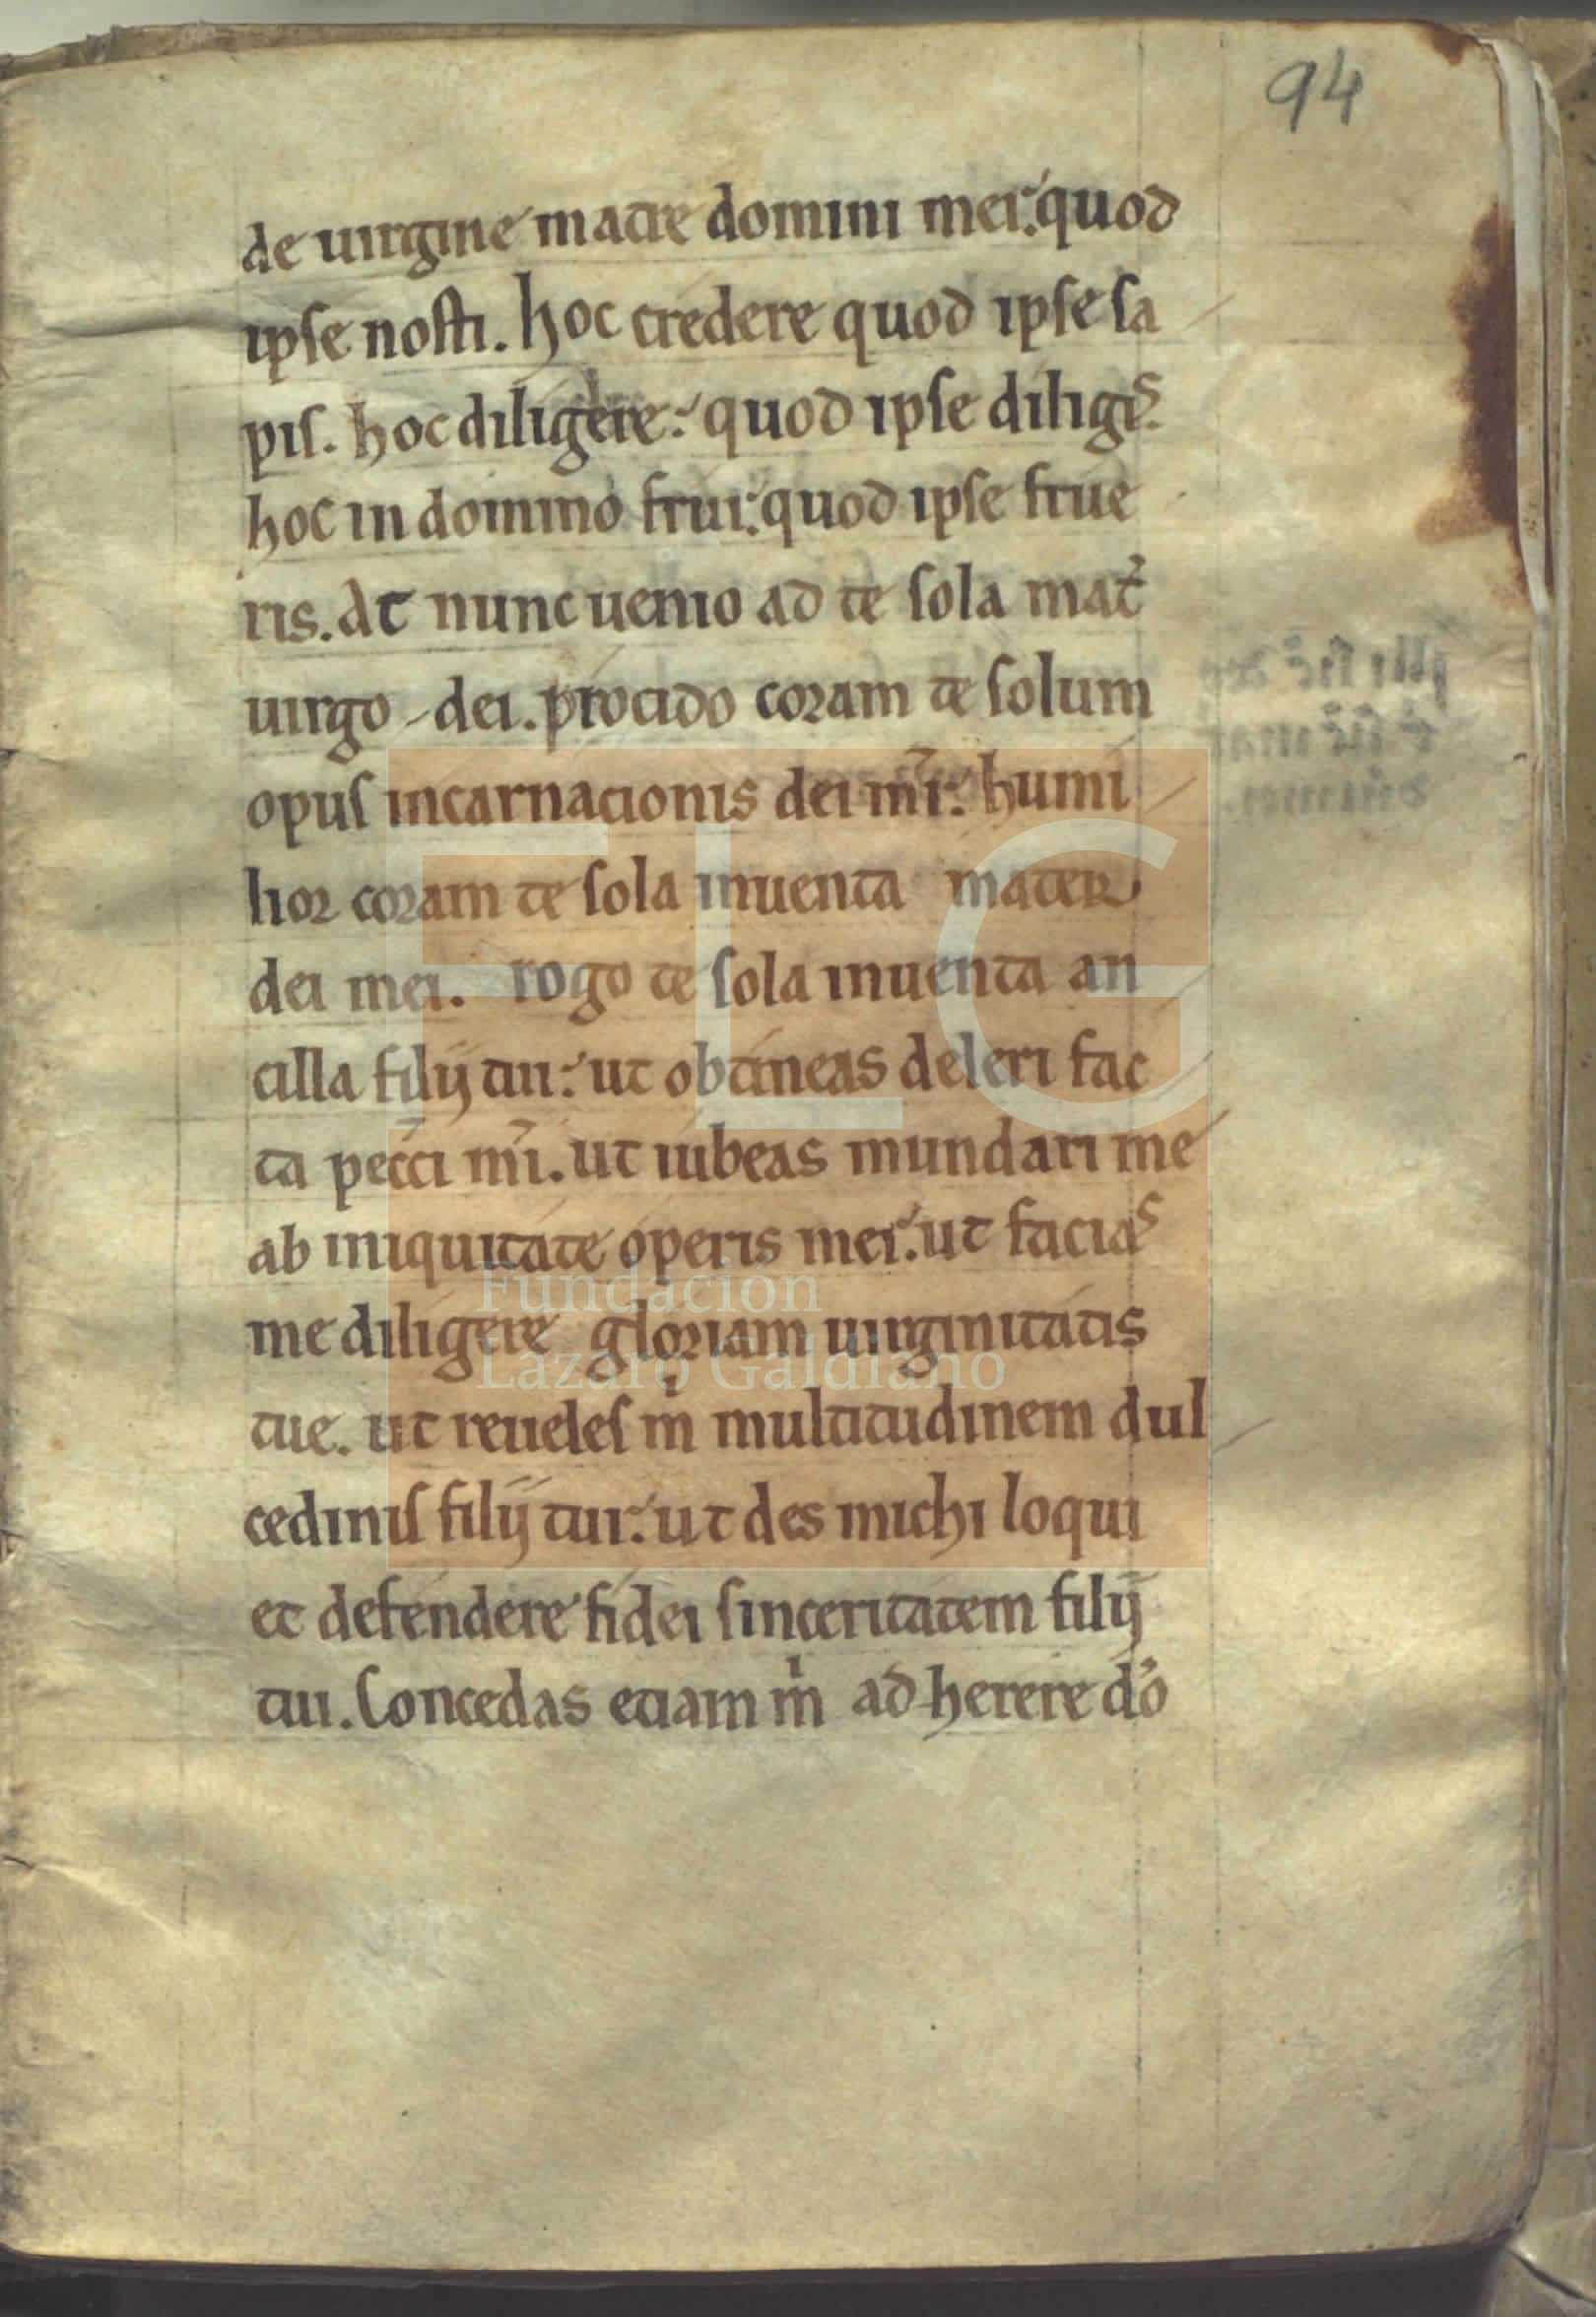 94
de uirgine matre domini mei: quod
ipse nosti. hoc credere quod ipse sa
pis. hoc diligere: quod ipse diligis.
hoc in domino frui: quod ipse frue
ris. At nunc uenio ad te sola mat̄
uirgo dei. procido coram te solum
opus incarnacionis dei mī: humi
lior coram te sola inuenta mater
dei mei. rogo te sola inuenta an
cilla filij tui: ut obtineas deleri fac
ta pecc̄i mī. ut iubeas mundari me
ab iniquitate operis mei: ut facias
me diligere gloriam uirginitatis
tue. ut reueles m̍ multitudinem dul
cedinis filij tui: ut des michi loqui
et defendere fidei sinceritatem filij
tui. Concedas etiam m̍ adherere do̍
FLG
Fundación
Lázaro Galdiano